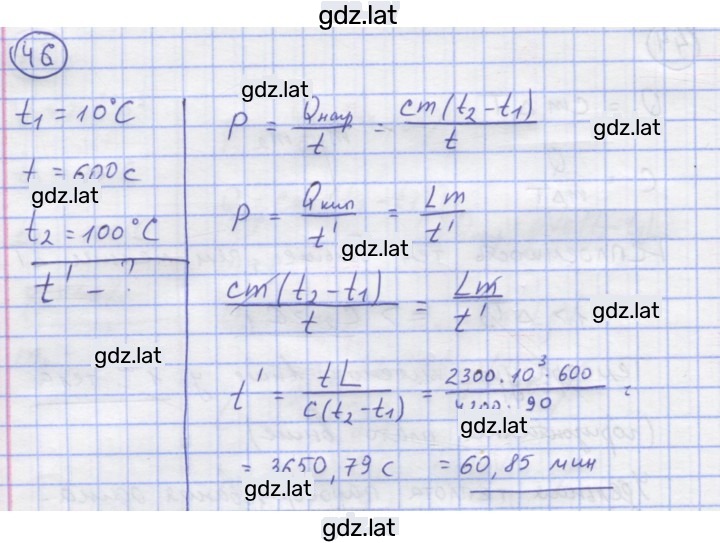 gdz.lat
46
t₁ = 10°C
t = 600 c
gdz.lat
t₂ = 100°C
t' – ?
gdz.lat
gdz.lat
P = Qнагр / t = cm(t₂ – t₁) / t
gdz.lat
P = Qкип / t' = Lm / t'
gdz.lat
cm(t₂ – t₁) / t = Lm / t'
gdz.lat
t' = tL / c(t₂ – t₁) = 2300 · 10³ · 600 / 4200 · 90 =
gdz.lat
= 3650,79 c = 60,85 мин
gdz.lat
gdz.lat